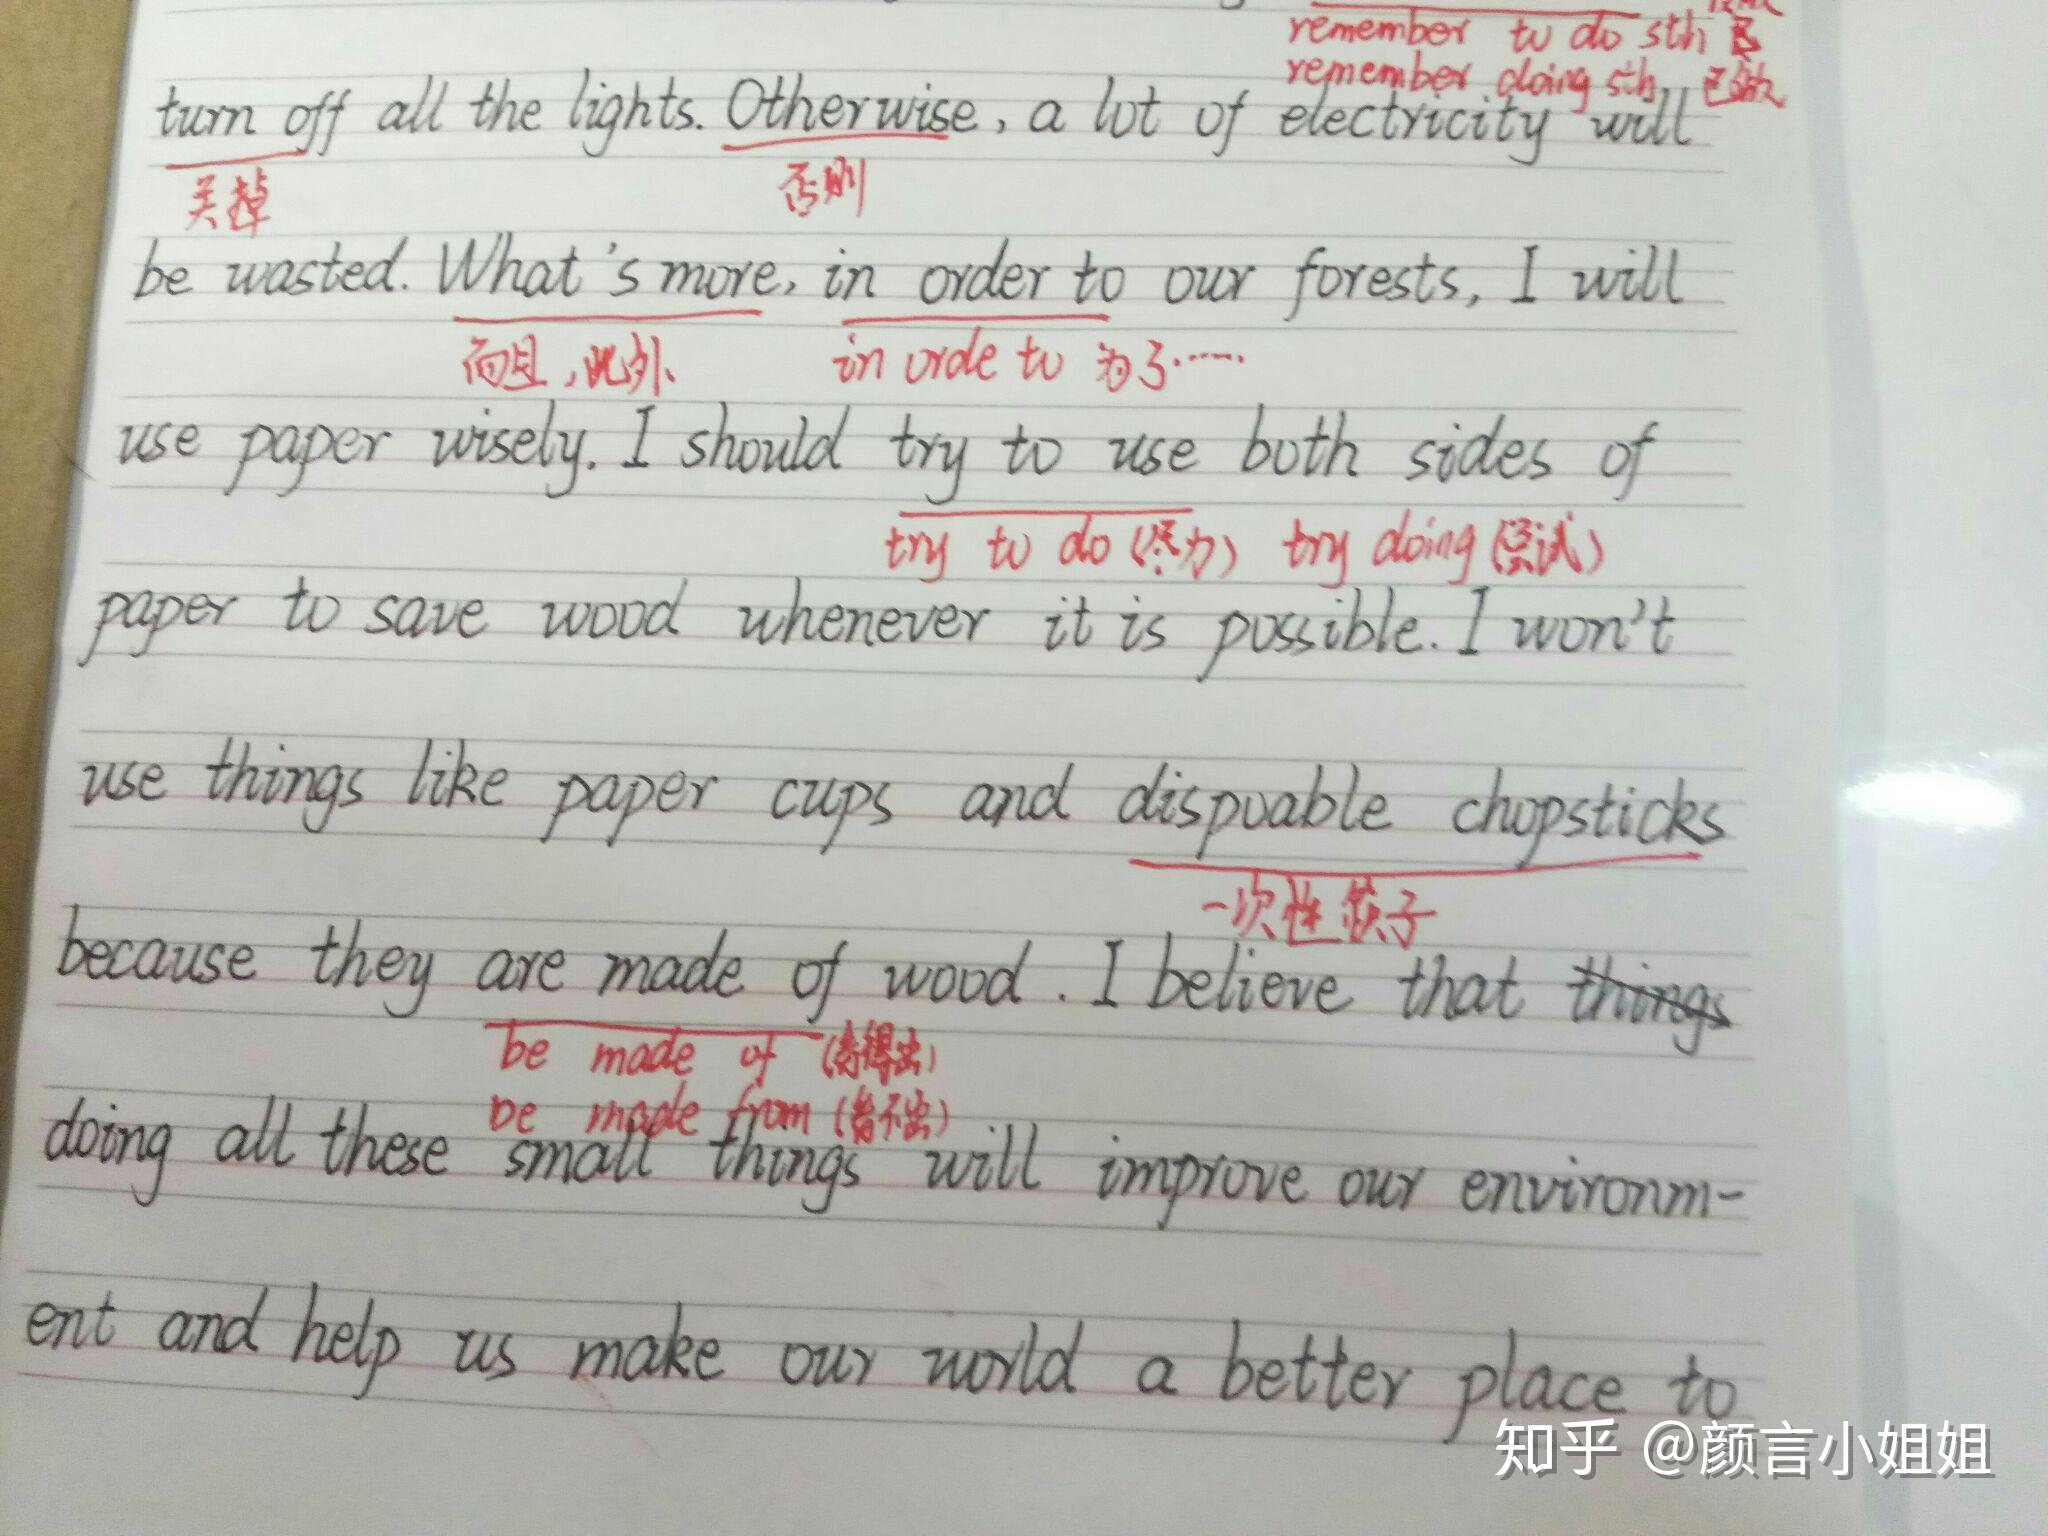 remember to do sth
remember doing sth 已做
turn off all the lights. Otherwise, a lot of electricity will
关掉 否则
be wasted. What's more, in order to our forests, I will
而且，此外、 in orde to 为了……
use paper wisely. I should try to use both sides of
try to do (尽力) try doing (尝试)
paper to save wood whenever it is possible. I won't
use things like paper cups and dispoable chopsticks
一次性筷子
because they are made of wood. I believe that things
be made of (看得出)
be made from (看不出)
doing all these small things will improve our environm-
ent and help us make our world a better place to
知乎 @颜言小姐姐